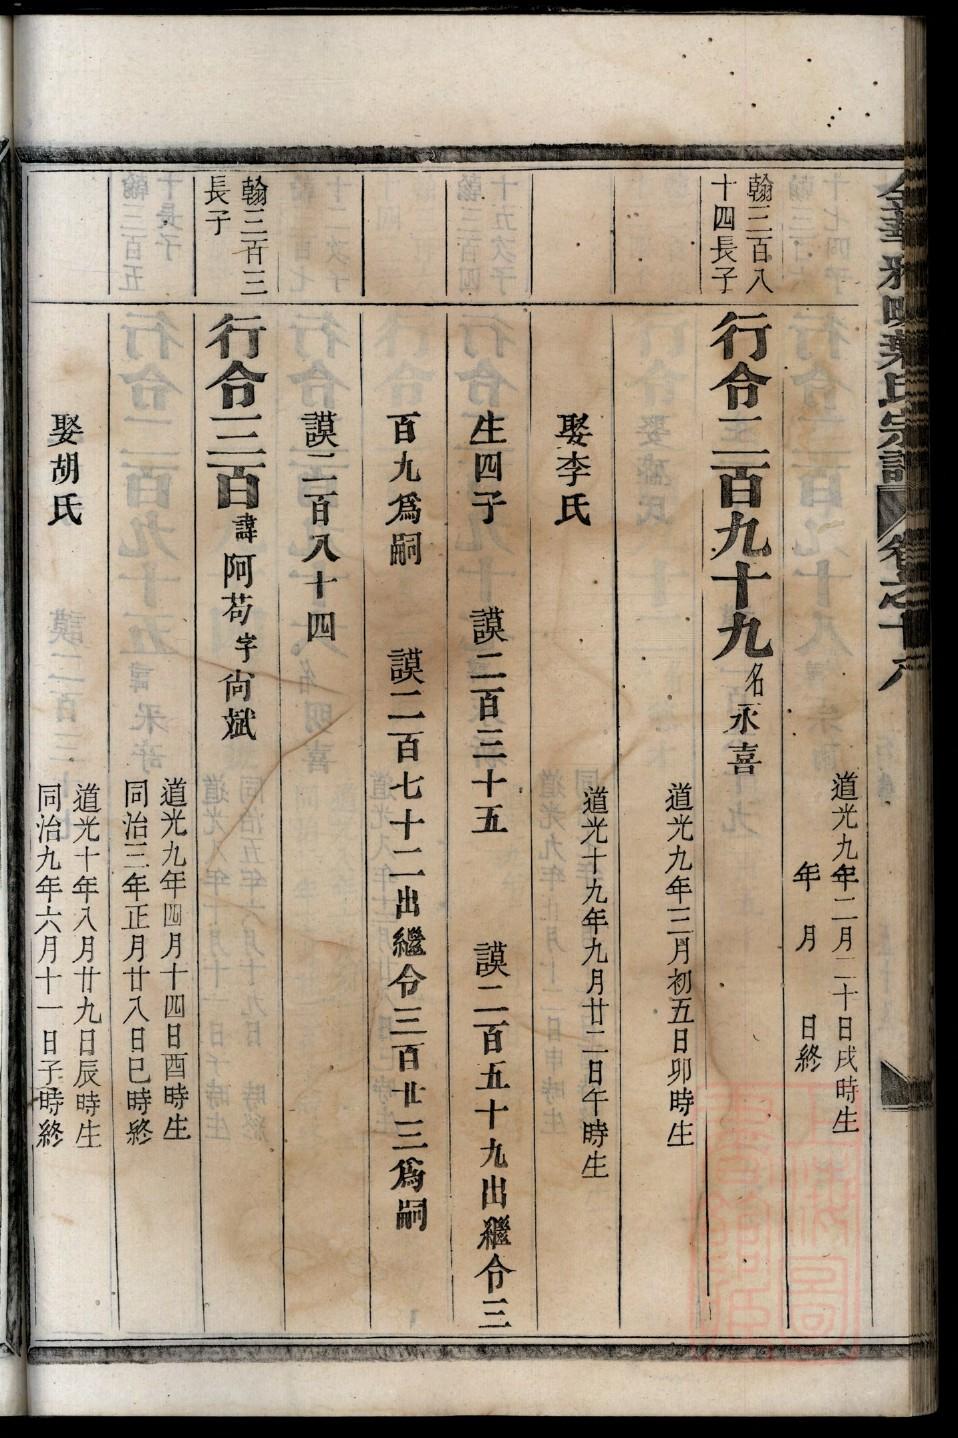 道光九年二月二十日戌時生
年 月 日終
翰三百八
十四長子
行令二百九十九 名永喜
道光九年三月初五日卯時生
娶李氏
道光十九年九月廿二日午時生
生四子 謨二百三十五 謨二百五十九出繼令三
百九為嗣 謨二百七十二出繼令三百廿三為嗣
謨二百八十四
翰三百三
長子
行令三百 諱阿苟字尚斌
道光九年四月十四日酉時生
同治三年正月廿八日巳時終
娶胡氏
道光十年八月廿九日辰時生
同治九年六月十一日子時終